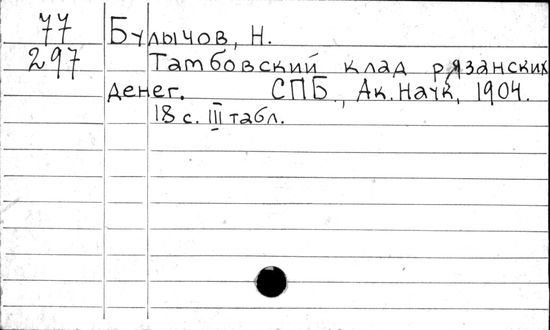 77 Булычов, Н.
297 Тамбовский клад рязанских
денег. СПБ., Ак. Наук, 1904.
18 с. III табл.